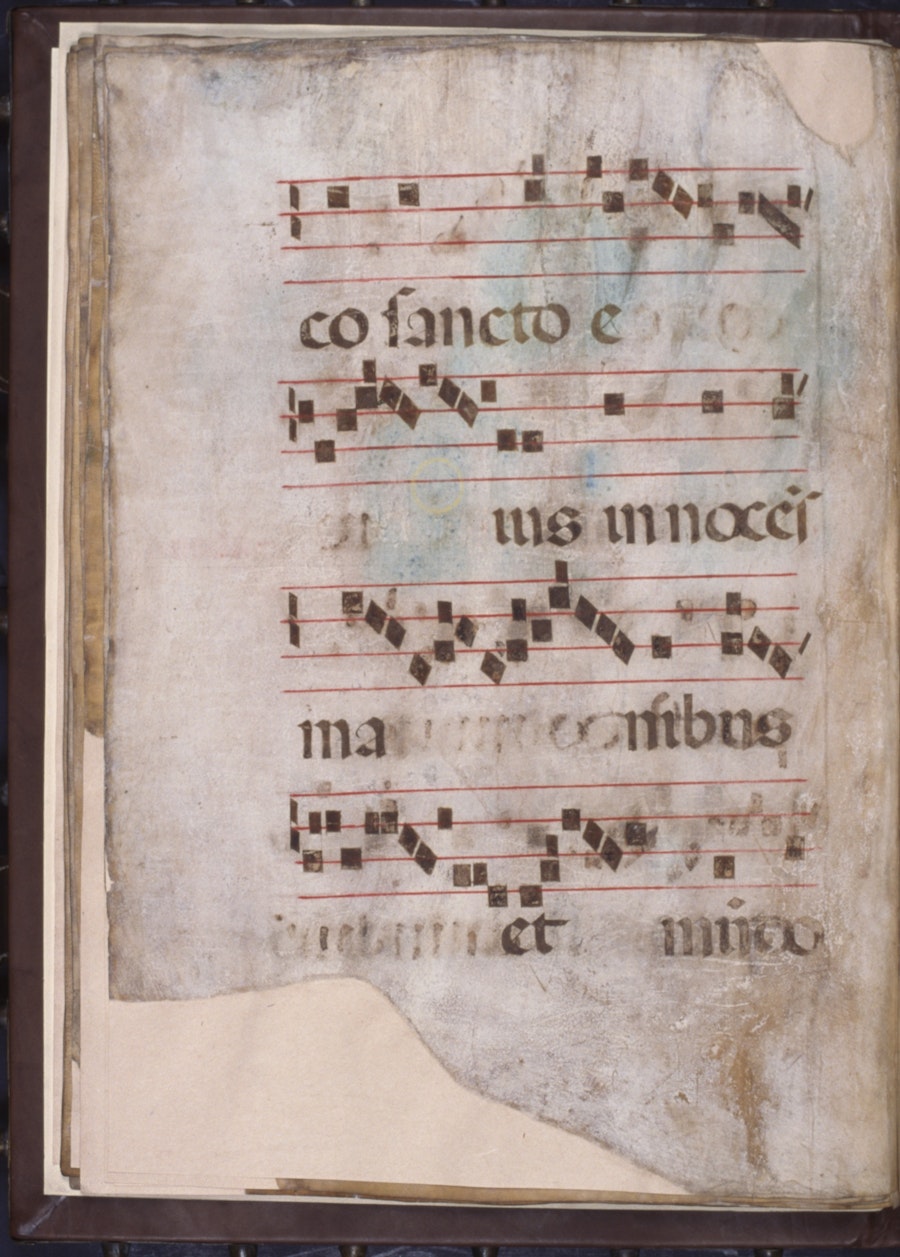 co sancto e
ius innocẽs
ma nibus
et mũdo